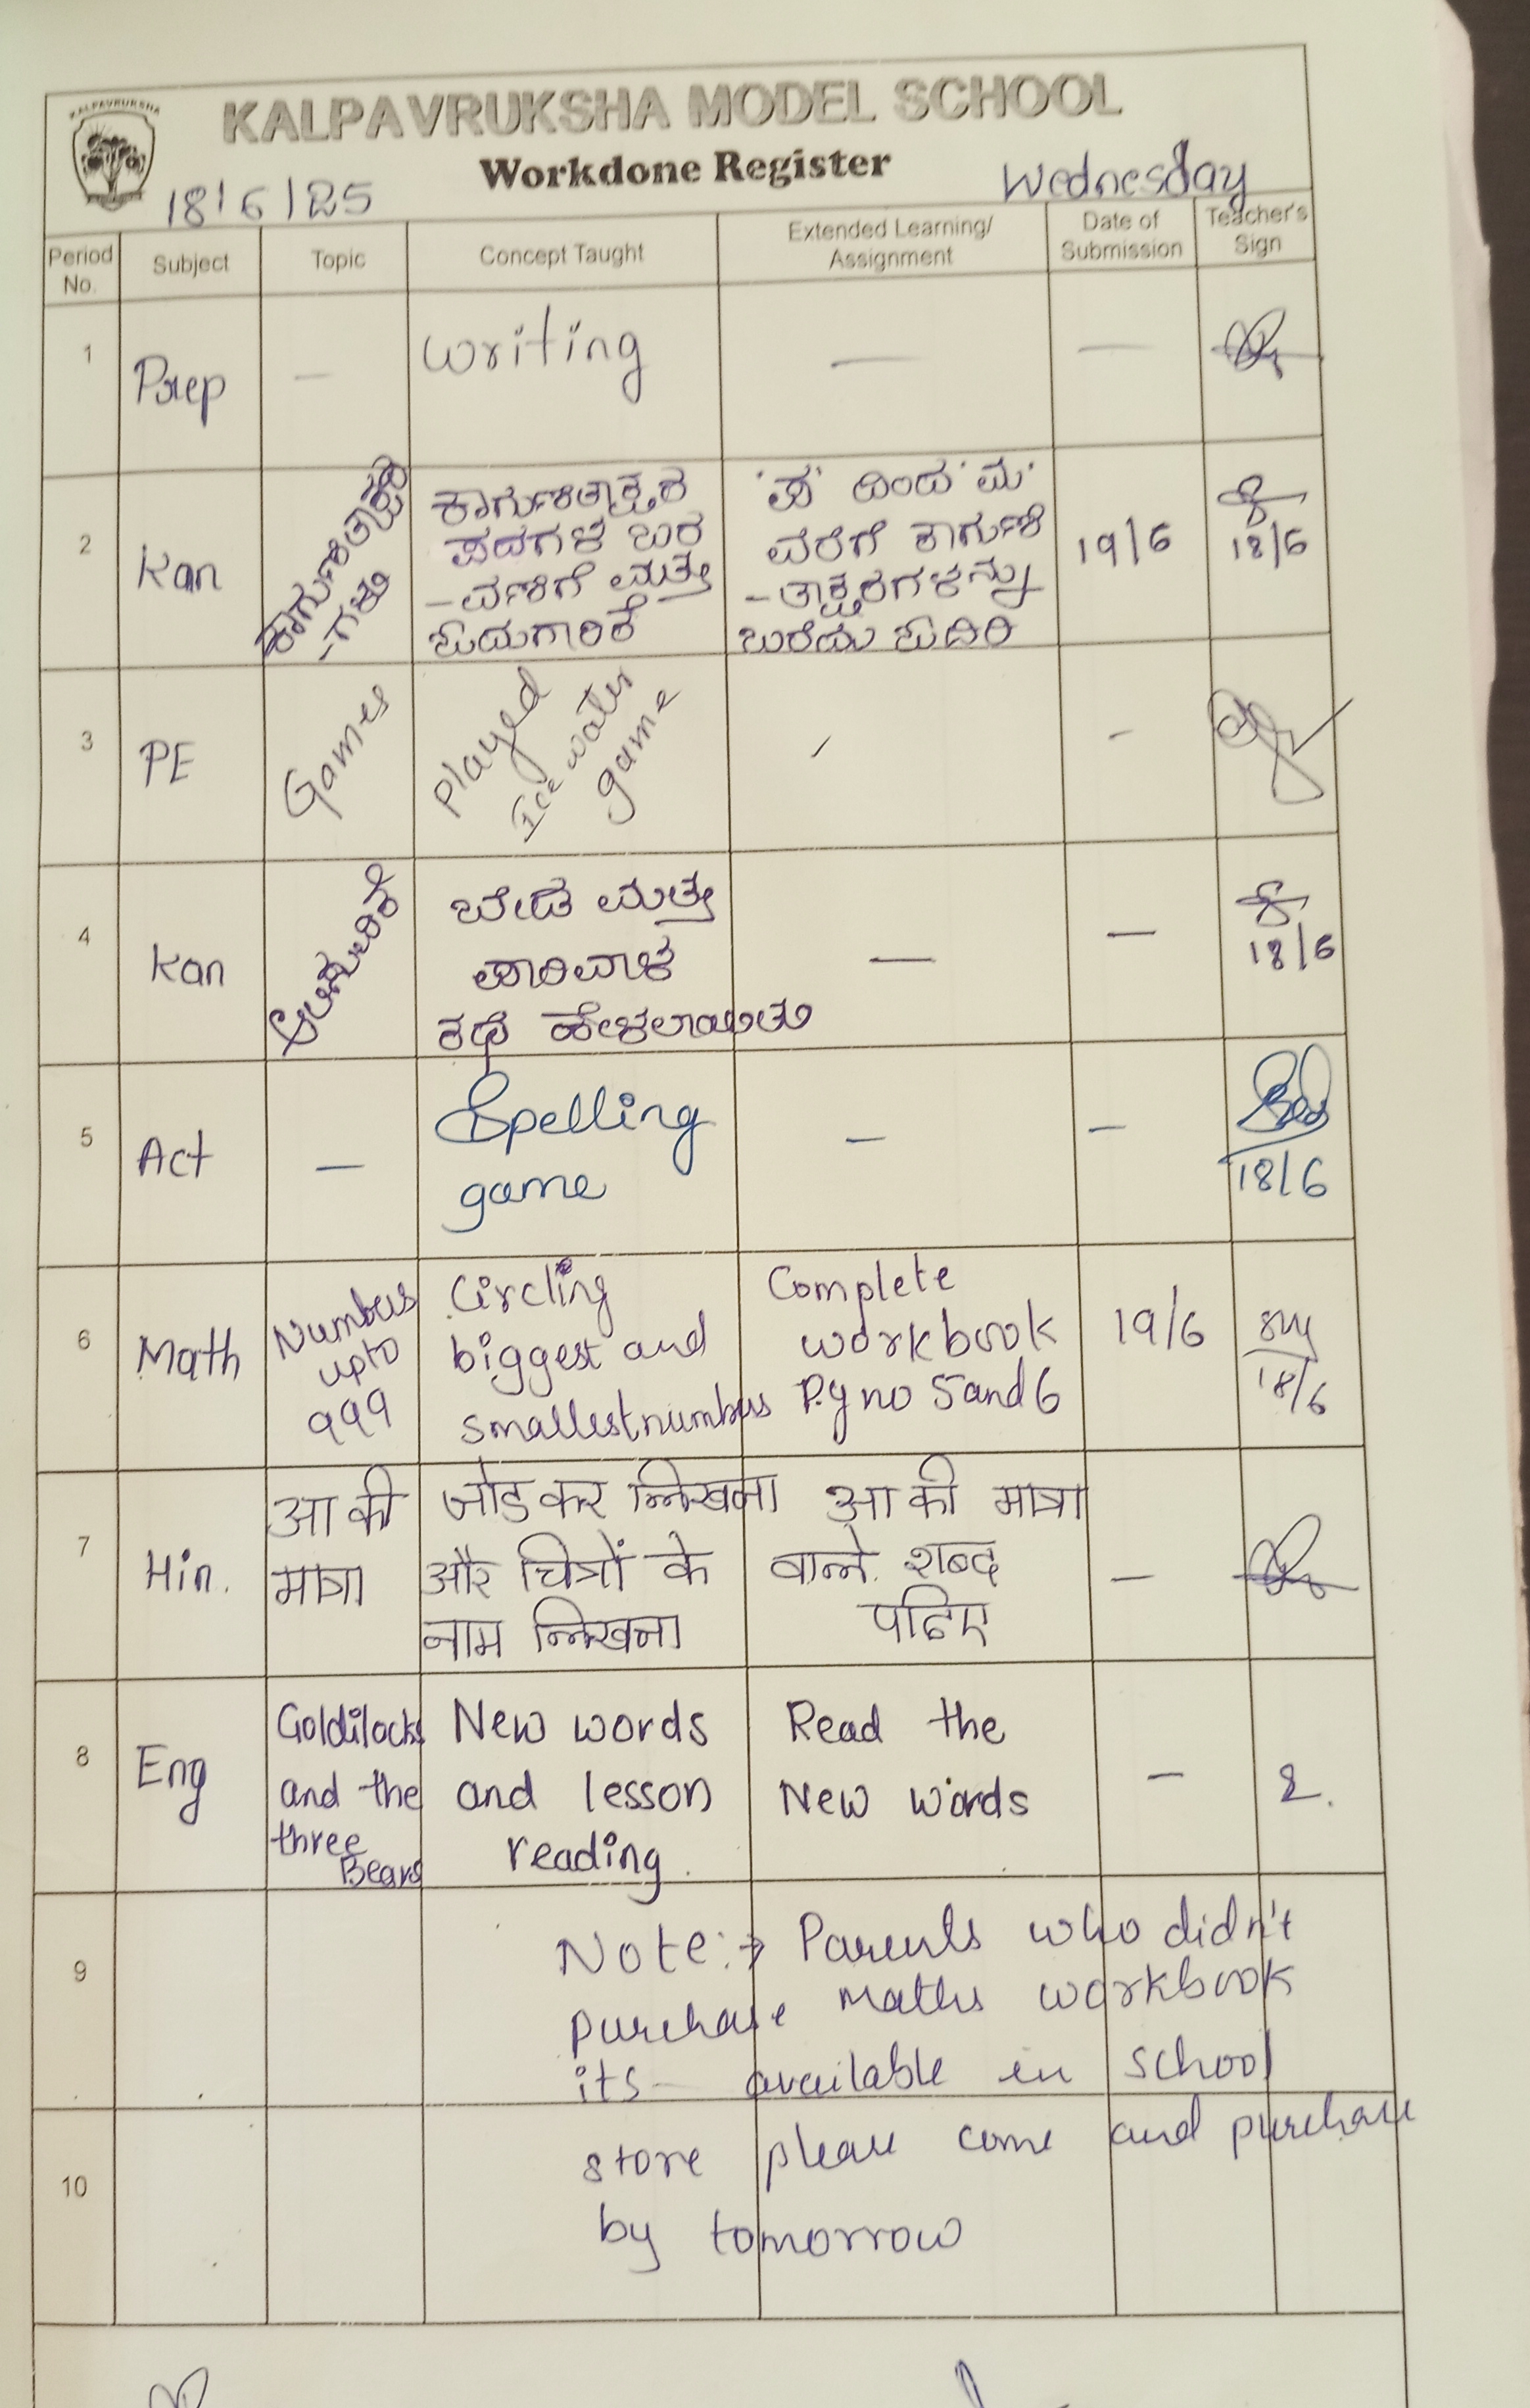 KALPAVRUKSHA
KALPAVRUKSHA MODEL SCHOOL
Workdone Register
18/6/25
Wednesday
Period No.
Subject
Topic
Concept Taught
Extended Learning/
Assignment
Date of
Submission
Teacher's
Sign
1
Prep
—
writing
—
—
2
Kan
ಕಾಗುಣಿತಾಕ್ಷರ
-ಗಳು
ಕಾಗುಣಿತಾಕ್ಷರ
ಪದಗಳ ಬರ
-ವಣಿಗೆ ಮತ್ತು
ಓದುಗಾರಿಕೆ
'ಪ' ದಿಂದ 'ಮ'
ವರೆಗೆ ಕಾಗುಣಿ
-ತಾಕ್ಷರಗಳನ್ನು
ಬರೆದು ಓದಿರಿ
19/6
18/6
3
PE
Games
Played
Ice water
game
-
-
4
Kan
ಆಲಿಸುವಿಕೆ
ಬೇಡ ಮತ್ತು
ಪಾರಿವಾಳ
ಕಥೆ ಹೇಳಲಾಯಿತು
—
—
18/6
5
Act
—
Spelling
game
—
—
18/6
6
Math
Numbers
upto
999
Circling
biggest and
smallest numbers
Complete
workbook
Pg no 5 and 6
19/6
18/6
7
Hin.
आ की
मात्रा
जोडकर लिखना
और चित्रों के
नाम लिखना
आ की मात्रा
वाले शब्द
पढिए
—
8
Eng
Goldilocks
and the
three
Bears
New words
and lesson
reading.
Read the
New words
—
9
Note:→ Parents who didn't
purchase Maths workbook
its available in school
10
store please come and purchase
by tomorrow